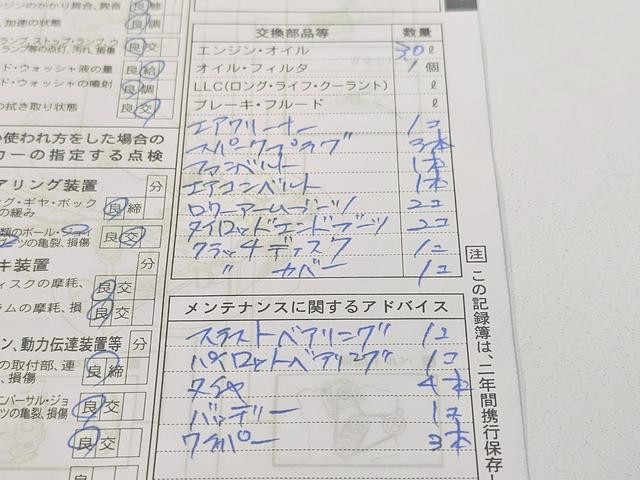 ジンのかかり具合、異音
加速の状態
良調
ランプ、ストップ・ランプ、ウ
ランプ等の点灯、汚れ、損傷
良交
ド・ウォッシャ液の量
良給
ド・ウォッシャの噴射
良調
の拭き取り状態
良交
い使われ方をした場合の
カーの指定する点検
アリング装置
分
グ・ギヤ・ボック
の緩み
良締
類のボール・ジョ
ツの亀裂、損傷
良交
キ装置
分
ディスクの摩耗、
良交
ラムの摩耗、損
良交
ン、動力伝達装置等
分
の取付部、連
、損傷
良締
ニバーサル・ジョ
ツの亀裂、損傷
良交
良交
交換部品等 数量
エンジン・オイル 3.0 ℓ
オイル・フィルタ 1 個
LLC(ロング・ライフ・クーラント) ℓ
ブレーキ・フルード ℓ
エアクリーナー 1コ
スパークプラグ 3本
ファンベルト 1本
エアコンベルト 1本
ロワーアームブーツ 2コ
タイロッドエンドブーツ 2コ
クラッチディスク 1コ
〃 カバー 1コ
メンテナンスに関するアドバイス
スラストベアリング 1コ
パイロットベアリング 1コ
タイヤ 4本
バッテリー 1コ
ワイパー 3本
注 この記録簿は、二年間携行保存し